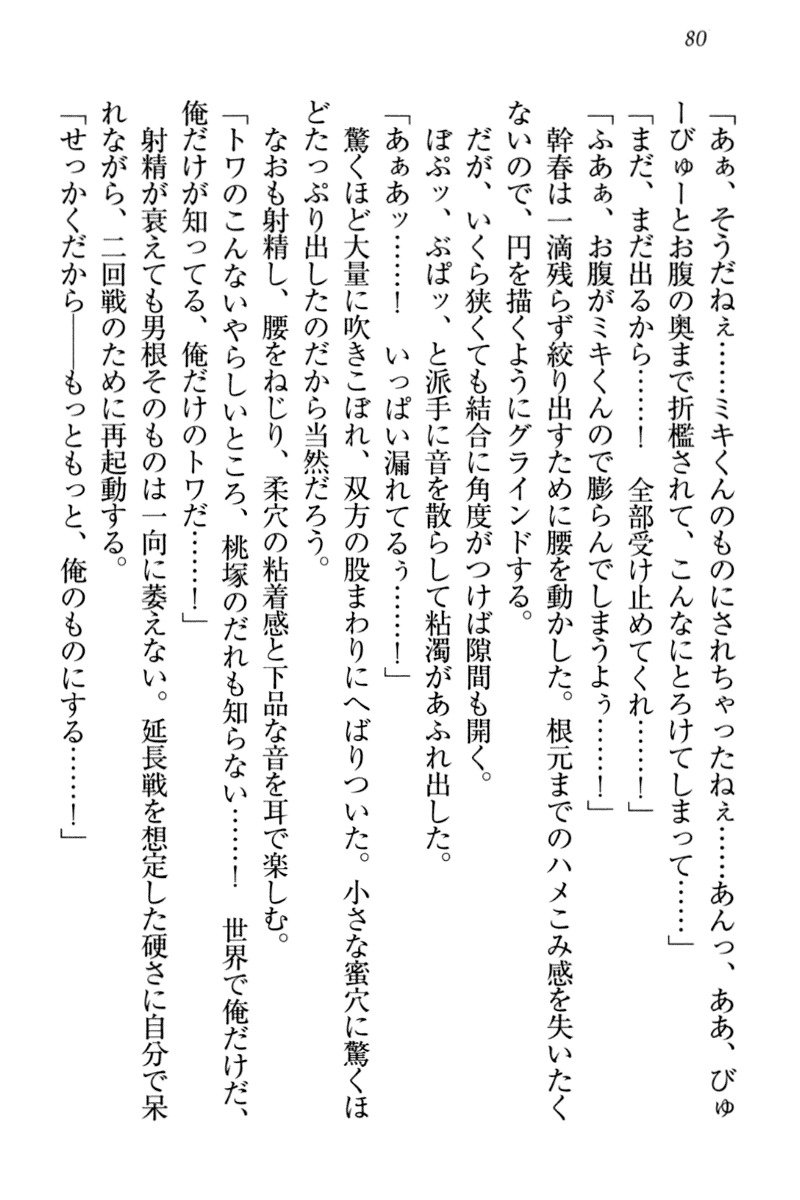 80
「あぁ、そうだねぇ……ミキくんのものにされちゃったねぇ……あんっ、ああ、びゅ
ーびゅーとお腹の奥まで折檻されて、こんなにとろけてしまって……」
「まだ、まだ出るから……！　全部受け止めてくれ……！」
「ふあぁ、お腹がミキくんので膨らんでしまうよぅ……！」
幹春は一滴残らず絞り出すために腰を動かした。根元までのハメこみ感を失いたく
ないので、円を描くようにグラインドする。
だが、いくら狭くても結合に角度がつけば隙間も開く。
ぽぷッ、ぶぱッ、と派手に音を散らして粘濁があふれ出した。
「あぁあッ……！　いっぱい漏れてるぅ……！」
驚くほど大量に吹きこぼれ、双方の股まわりにへばりついた。小さな蜜穴に驚くほ
どたっぷり出したのだから当然だろう。
なおも射精し、腰をねじり、柔穴の粘着感と下品な音を耳で楽しむ。
「トワのこんないやらしいところ、桃塚のだれも知らない……！　世界で俺だけだ、
俺だけが知ってる、俺だけのトワだ……！」
射精が衰えても男根そのものは一向に萎えない。延長戦を想定した硬さに自分で呆
れながら、二回戦のために再起動する。
「せっかくだから――もっともっと、俺のものにする……！」